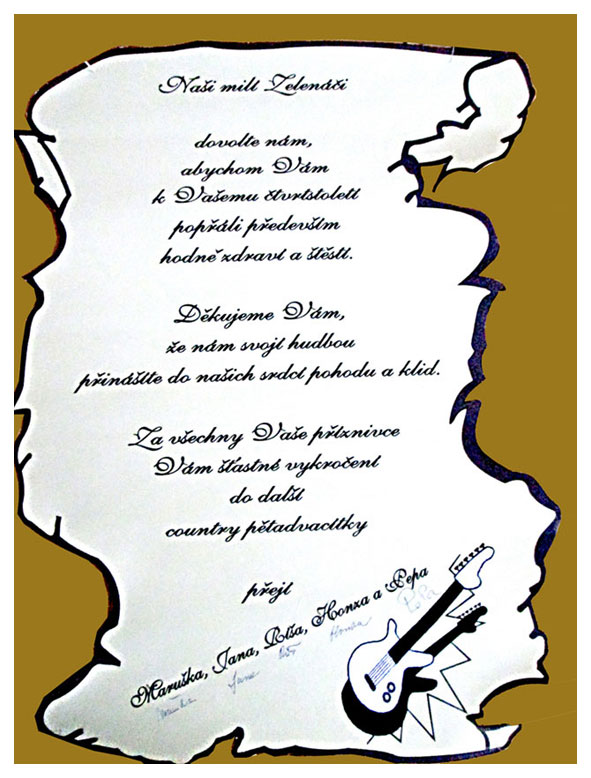 Naši milí Zelenáči
dovolte nám,
abychom Vám
k Vašemu čtvrtstoletí
popřáli především
hodně zdraví a štěstí.
Děkujeme Vám,
že nám svojí hudbou
přinášíte do našich srdcí pohodu a klid.
Za všechny Vaše příznivce
Vám šťastné vykročení
do další
country pětadvacítky
přejí
Maruška, Jana, Ríša, Honza a Pepa
Maruška Jana Honza Pepa